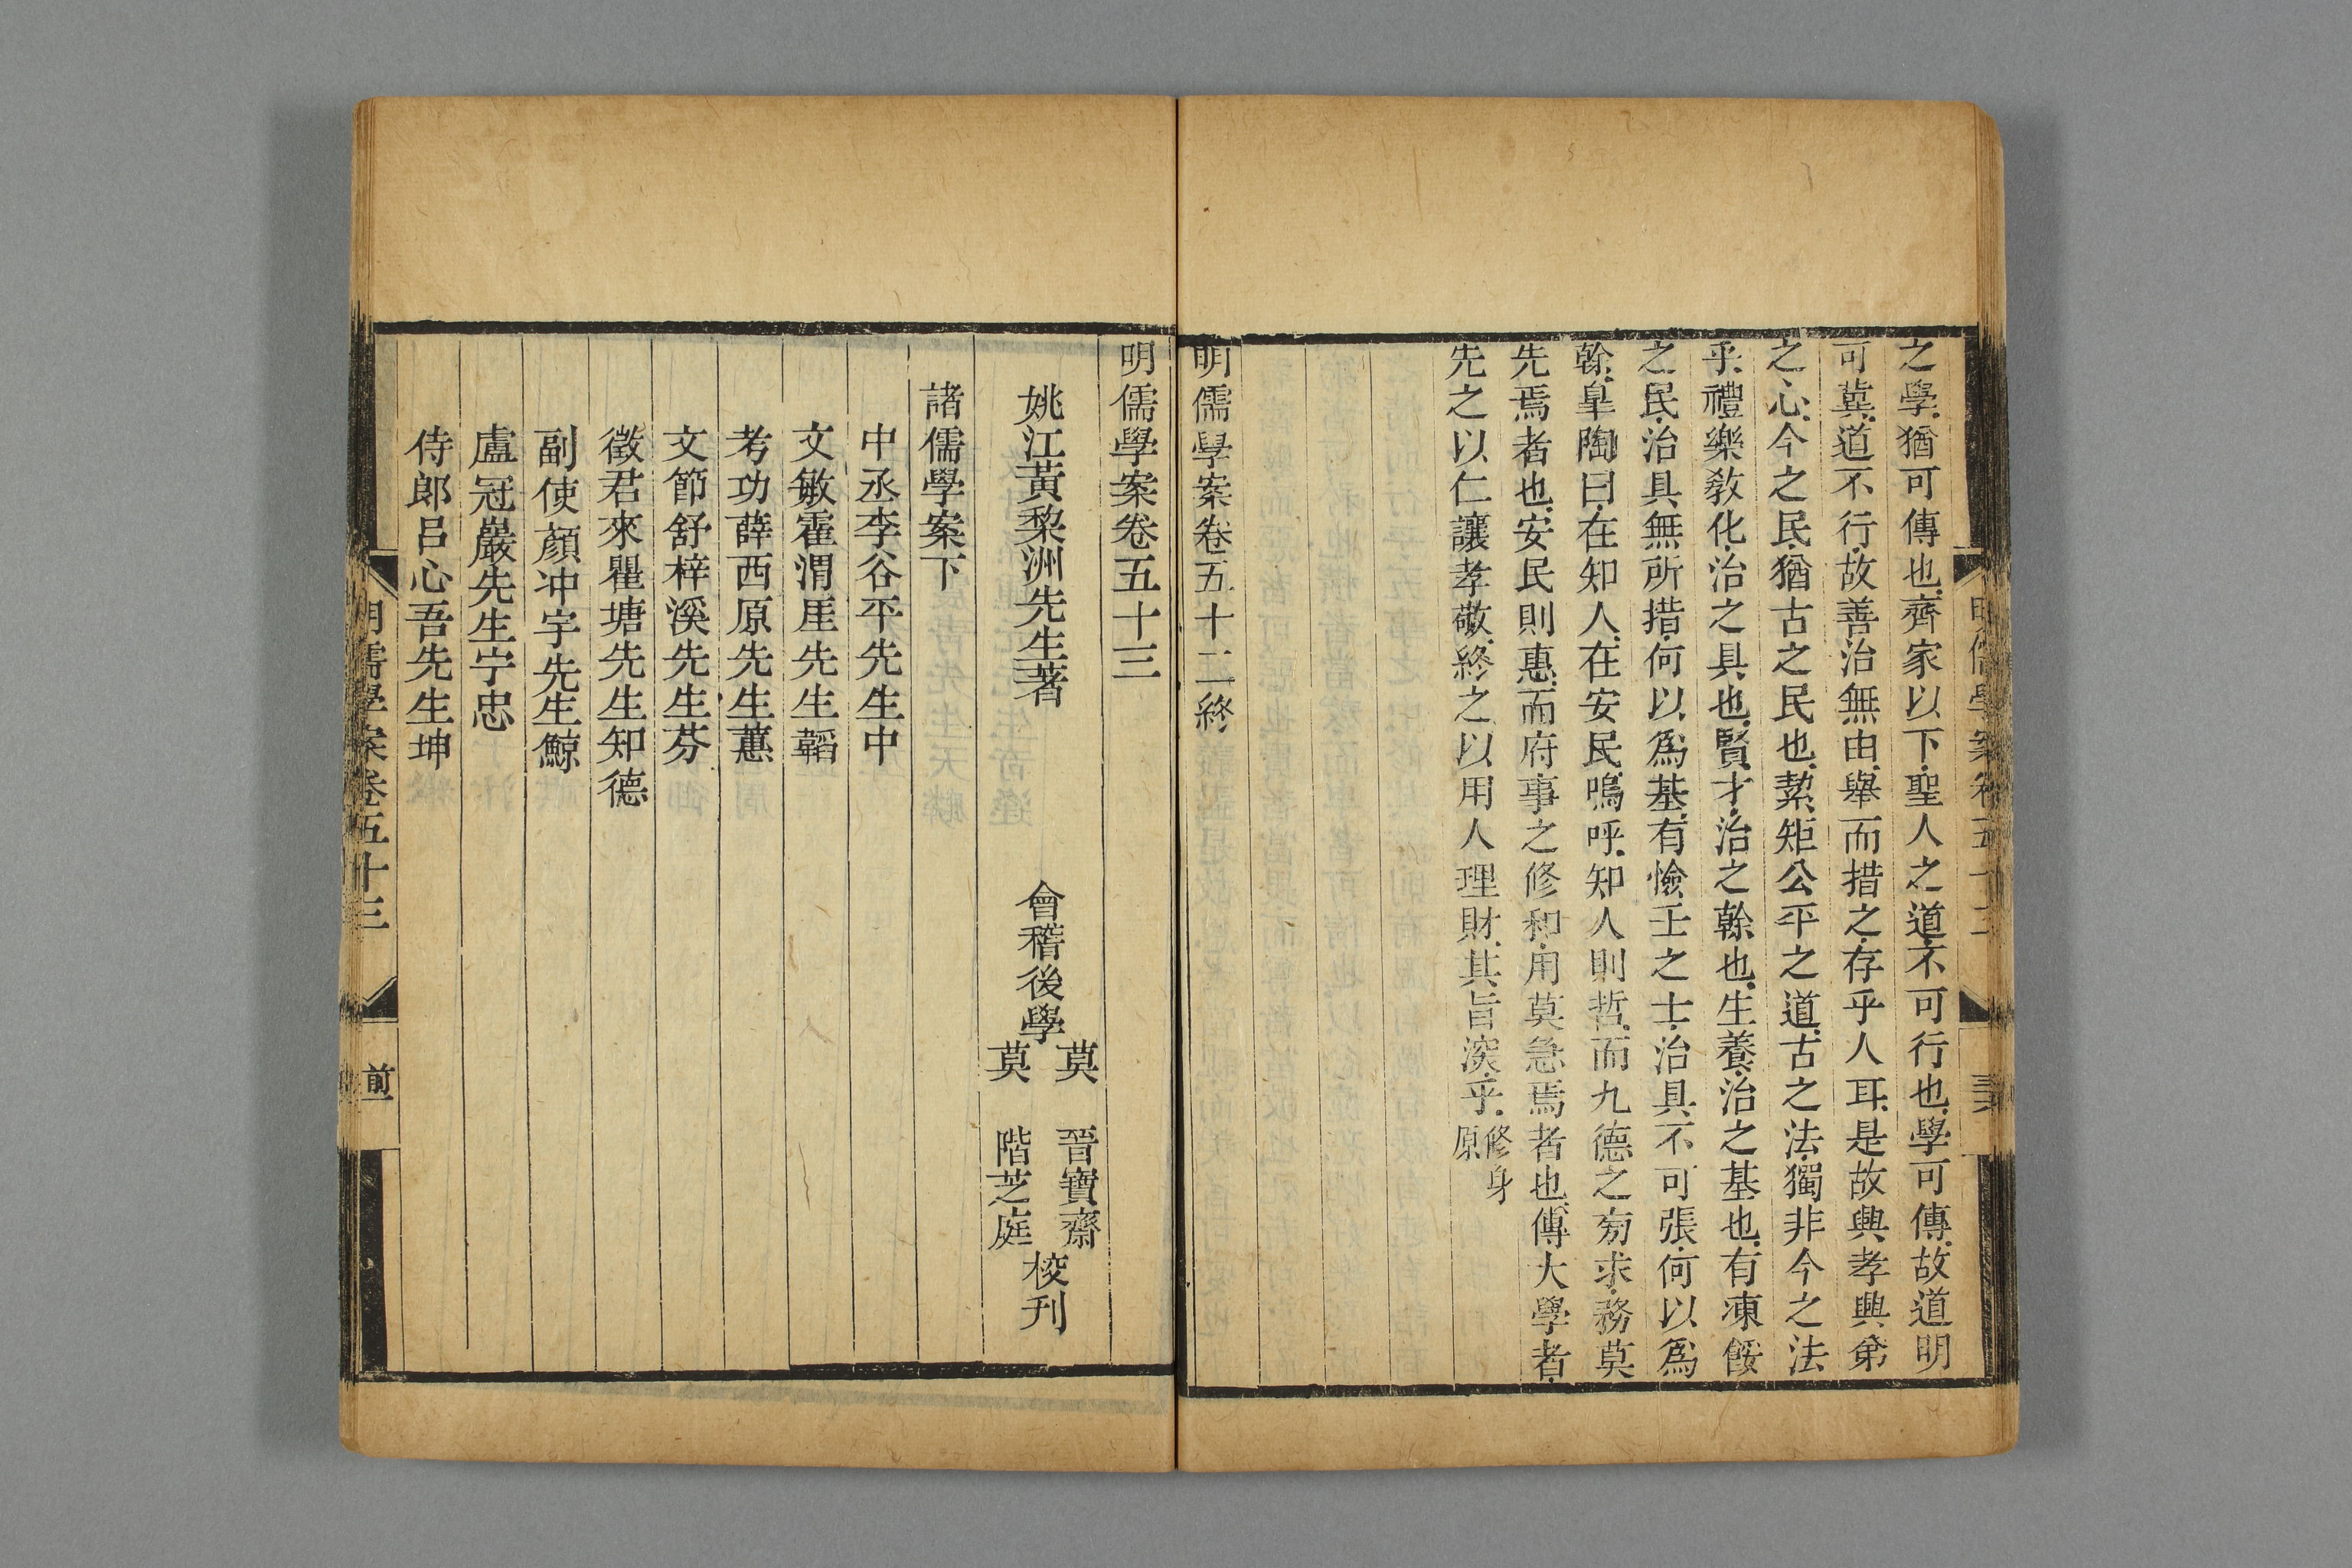 之學猶可傳也齊家以下聖人之道不可行也學可傳故道明
可冀道不行故善治無由舉而措之存乎人耳是故興孝興弟
之心今之民猶古之民也絜矩公平之道古之法獨非今之法
乎禮樂敎化治之具也賢才治之榦也生養治之基也有凍餒
之民治具無所措何以爲基有憸壬之士治具不可張何以爲
榦臯陶曰在知人在安民嗚呼知人則哲而九德之旁求務莫
先焉者也安民則惠而府事之修和用莫急焉者也傳大學者
先之以仁讓孝敬終之以用人理財其旨深乎修身
原
明儒學案卷五十二終
明儒學案卷五十三
姚江黃梨洲先生著 會稽後學
莫 晉寶齋
莫 階芝庭
校刊
諸儒學案下
中丞李谷平先生中
文敏霍渭厓先生韜
考功薛西原先生蕙
文節舒梓溪先生芬
徵君來瞿塘先生知德
副使顏冲宇先生鯨
盧冠巖先生宁忠
侍郎呂心吾先生坤
明儒學案卷五十三 前一